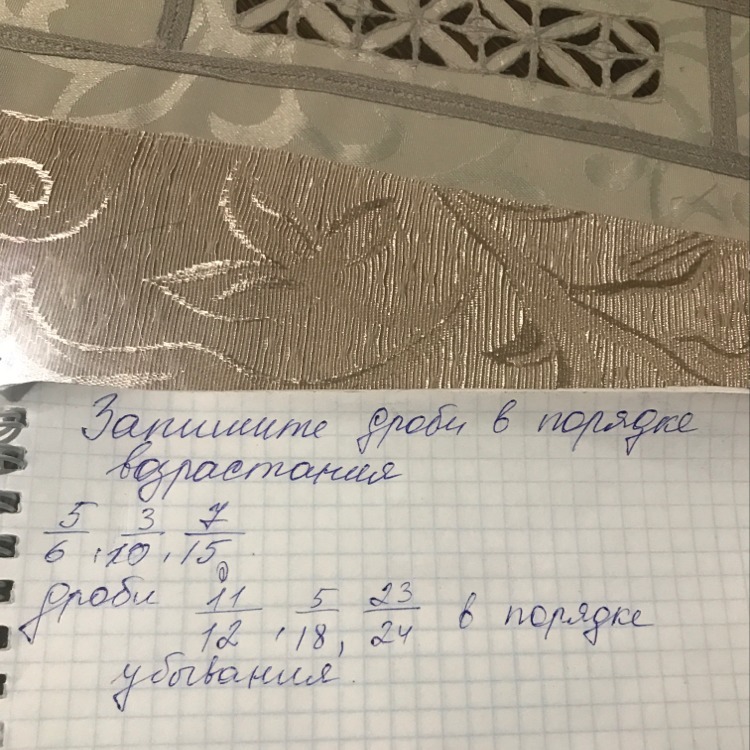 Запишите дроби в порядке
возрастания
5/6, 3/10, 7/15.
дроби 11/12, 5/18, 23/24 в порядке
убывания.